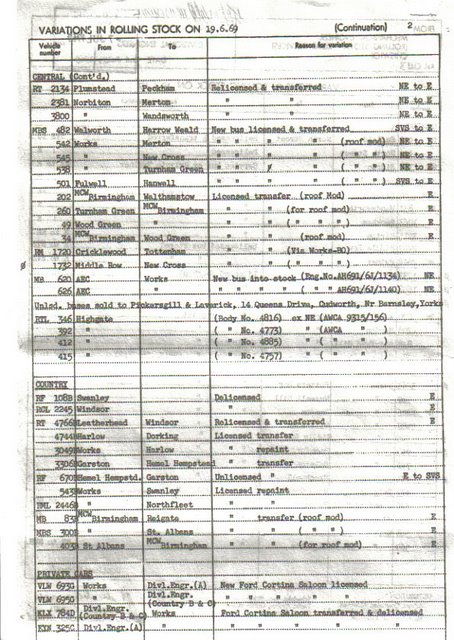 VARIATIONS IN ROLLING STOCK ON 19.6.69 (Continuation) 2
Vehicle number From To Reason for variation
CENTRAL (Cont'd.)
RT 2134 Plumstead Peckham Relicensed & transferred NE to E
2381 Norbiton Merton " " NE to E
3800 " Wandsworth " " NE to E
MBS 482 Walworth Harrow Weald New bus licensed & transferred SVS to E
542 Works Merton " " " " (roof mod) NE to E
545 " New Cross " " " " ( " " ) NE to E
538 " Turnham Green " " " " ( " " ) NE to E
501 Fulwell Hanwell " " " " ( " " ) SVS to E
202 MCW Birmingham Walthamstow Licensed transfer (roof Mod) E
260 Turnham Green MCW Birmingham " " (for roof mod) E
49 Wood Green " " " ( " " " ) E
34 MCW Birmingham Wood Green " " (roof mod) E
RM 1720 Cricklewood Tottenham " " (Via Works-BO)
1732 Middle Row New Cross " " ( " " " )
MB 620 AEC Works New bus into stock (Eng.No.AH691/6J/1134) NE
626 AEC " " " " " ( " " AH691/6J/1140) NE
Unlsd. buses sold to Pickersgill & Laverick, 14 Queens Drive, Cudworth, Nr Barnsley, Yorks
RTL 346 Highgate (Body No. 4816) ex NE (AWCA 9315/156)
392 " ( " No. 4773) " (AWCA " )
412 " ( " No. 4885) " ( " " )
415 " ( " No. 4757) " ( " " )
COUNTRY
RF 108B Swanley Delicensed E
RCL 2245 Windsor " E
RT 4766 Leatherhead Windsor Relicensed & transferred E
4744 Harlow Dorking Licensed transfer
3049 Works Harlow " repaint
3306 Garston Hemel Hempstead " transfer
RF 670 Hemel Hempstd. Garston Unlicensed " E to SVS
543 Works Swanley Licensed repaint
RML 2446 " Northfleet " "
MB 83 MCW Birmingham Reigate " transfer (roof mod) E
MBS 300 " St. Albans " " ( " " ) E
403 St Albans MCW Birmingham " " (for roof mod) E
PRIVATE CARS
VLW 693G Works Divl.Engr.(A) New Ford Cortina Saloon licensed
VLW 695G " Divl.Engr. (Country B & C) " " " " "
KLX 784D Divl.Engr. (Country B & C) Works Ford Cortina Saloon transferred & delicensed
KYN 325C Divl.Engr.(A) " " " " " "